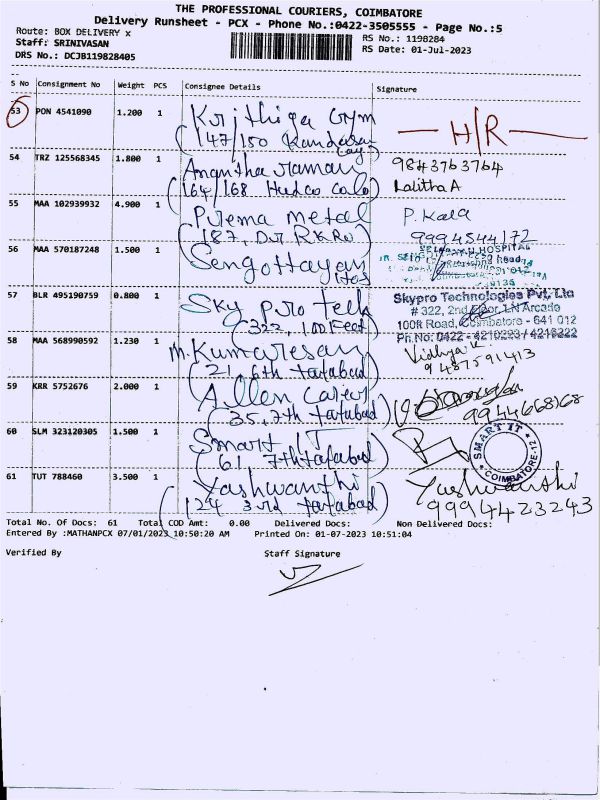 THE PROFESSIONAL COURIERS, COIMBATORE
Delivery Runsheet - PCX - Phone No.:0422-3505555 - Page No.:5
Route: BOX DELIVERY x
RS No.: 1198284
Staff: SRINIVASAN
RS Date: 01-Jul-2023
DRS No.: DCJB119828405
S No Consignment No Weight PCS Consignee Details Signature
53 PON 4541090 1.200 1 Krithiga Gym
H/R
(147/150
54 TRZ 125568345 1.800 1 Anantha raman
9843763764
(164/168 Hudco Colo)
Lalitha A
55 MAA 102939932 4.900 1 Prema metal
P. Kala
(187,
9994544172
56 MAA 570187248 1.500 1 Sengottayan
HOSPITAL
Hos
57 BLR 495190759 0.800 1 Sky pro tech
Skypro Technologies Pvt. Ltd
# 322, 2nd Floor, LN Arcade
(322, 100 Feed)
100ft Road, Coimbatore - 641 012
Ph.No: 0422 - 4210293 / 4216222
58 MAA 568990592 1.230 1 M. Kumaresan
Vidhya K
9487591413
(21, 6th tatabad)
59 KRR 5752676 2.000 1 Allen Career
(35, 7th tatabad)
9944668168
60 SLM 323120305 1.500 1 Smart IT
SMART IT
COIMBATORE-12
(61 7th tatabad)
61 TUT 788460 3.500 1 Yashwanthi
Yashwanthi
(124 3rd tatabad)
9994423243
Total No. Of Docs: 61 Total COD Amt: 0.00 Delivered Docs: Non Delivered Docs:
Entered By :MATHANPCX 07/01/2023 10:50:20 AM Printed On: 01-07-2023 10:51:04
Verified By Staff Signature